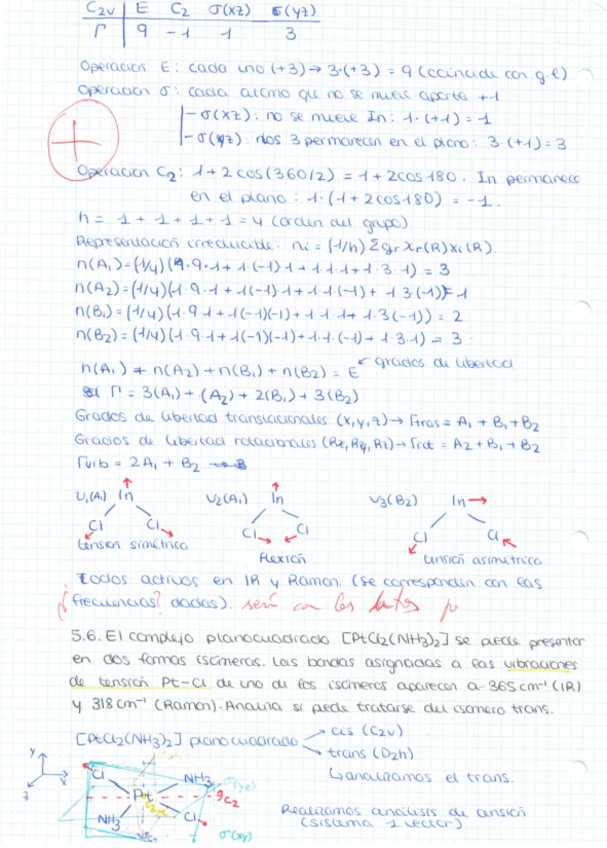 C2v | E C2 σ(xz) σ(yz)
Γ | 9 -1 1 3
Operación E: cada uno (+3) → 3·(+3) = 9 (coincide con g.l)
Operación σ: cada átomo que no se mueve aporta +1
- σ(xz): no se mueve In: 1·(+1) = 1
- σ(yz): los 3 permanecen en el plano: 3·(+1) = 3
Operación C2: 1 + 2cos(360/2) = 1 + 2cos180. In permanece
en el plano: 1·(1+2cos180) = -1.
h = 1 + 1 + 1 + 1 = 4 (orden del grupo)
Representación irreducible: ni = (1/h) Σgr χr(R)χi(R)
n(A1) = (1/4)(1·9·1 + 1·(-1)·1 + 1·1·1 + 1·3·1) = 3
n(A2) = (1/4)(1·9·1 + 1(-1)·1 + 1·1·(-1) + 1·3(-1)) = 1
n(B1) = (1/4)(1·9·1 + 1(-1)(-1) + 1·1·1 + 1·3(-1)) = 2
n(B2) = (1/4)(1·9·1 + 1(-1)(-1) + 1·1·(-1) + 1·3·1) = 3
n(A1) + n(A2) + n(B1) + n(B2) = E ← grados de libertad
Γ = 3(A1) + (A2) + 2(B1) + 3(B2)
Grados de libertad translacionales (x,y,z) → Γtras = A1 + B1 + B2
Grados de libertad rotacionales (Rx, Ry, Rz) → Γrot = A2 + B1 + B2
Γvib = 2A1 + B2
ν1(A1) In ν2(A1) In ν3(B2) In
Cl Cl Cl Cl Cl Cl
tensión simétrica flexión tensión asimétrica
Todos activos en IR y Raman. (se corresponden con las
¿frecuencias? dadas). serí con los datos
5.6. El complejo planocuadrado [PtCl2(NH3)2] se puede presentar
en dos formas isómeras. Las bandas asignadas a las vibraciones
de tensión Pt-Cl de uno de los isómeros aparecen a 365cm⁻¹ (IR)
y 318cm⁻¹ (Raman). Analiza si puede tratarse del isómero trans.
[PtCl2(NH3)2] planocuadrado → cis (C2v)
→ trans (D2h)
↳ analizamos el trans.
y x z
Cl NH3 σ(yz)
Pt C2
NH3 Cl σ(xy)
Realizamos análisis de tensión
(sistema 1 vector)